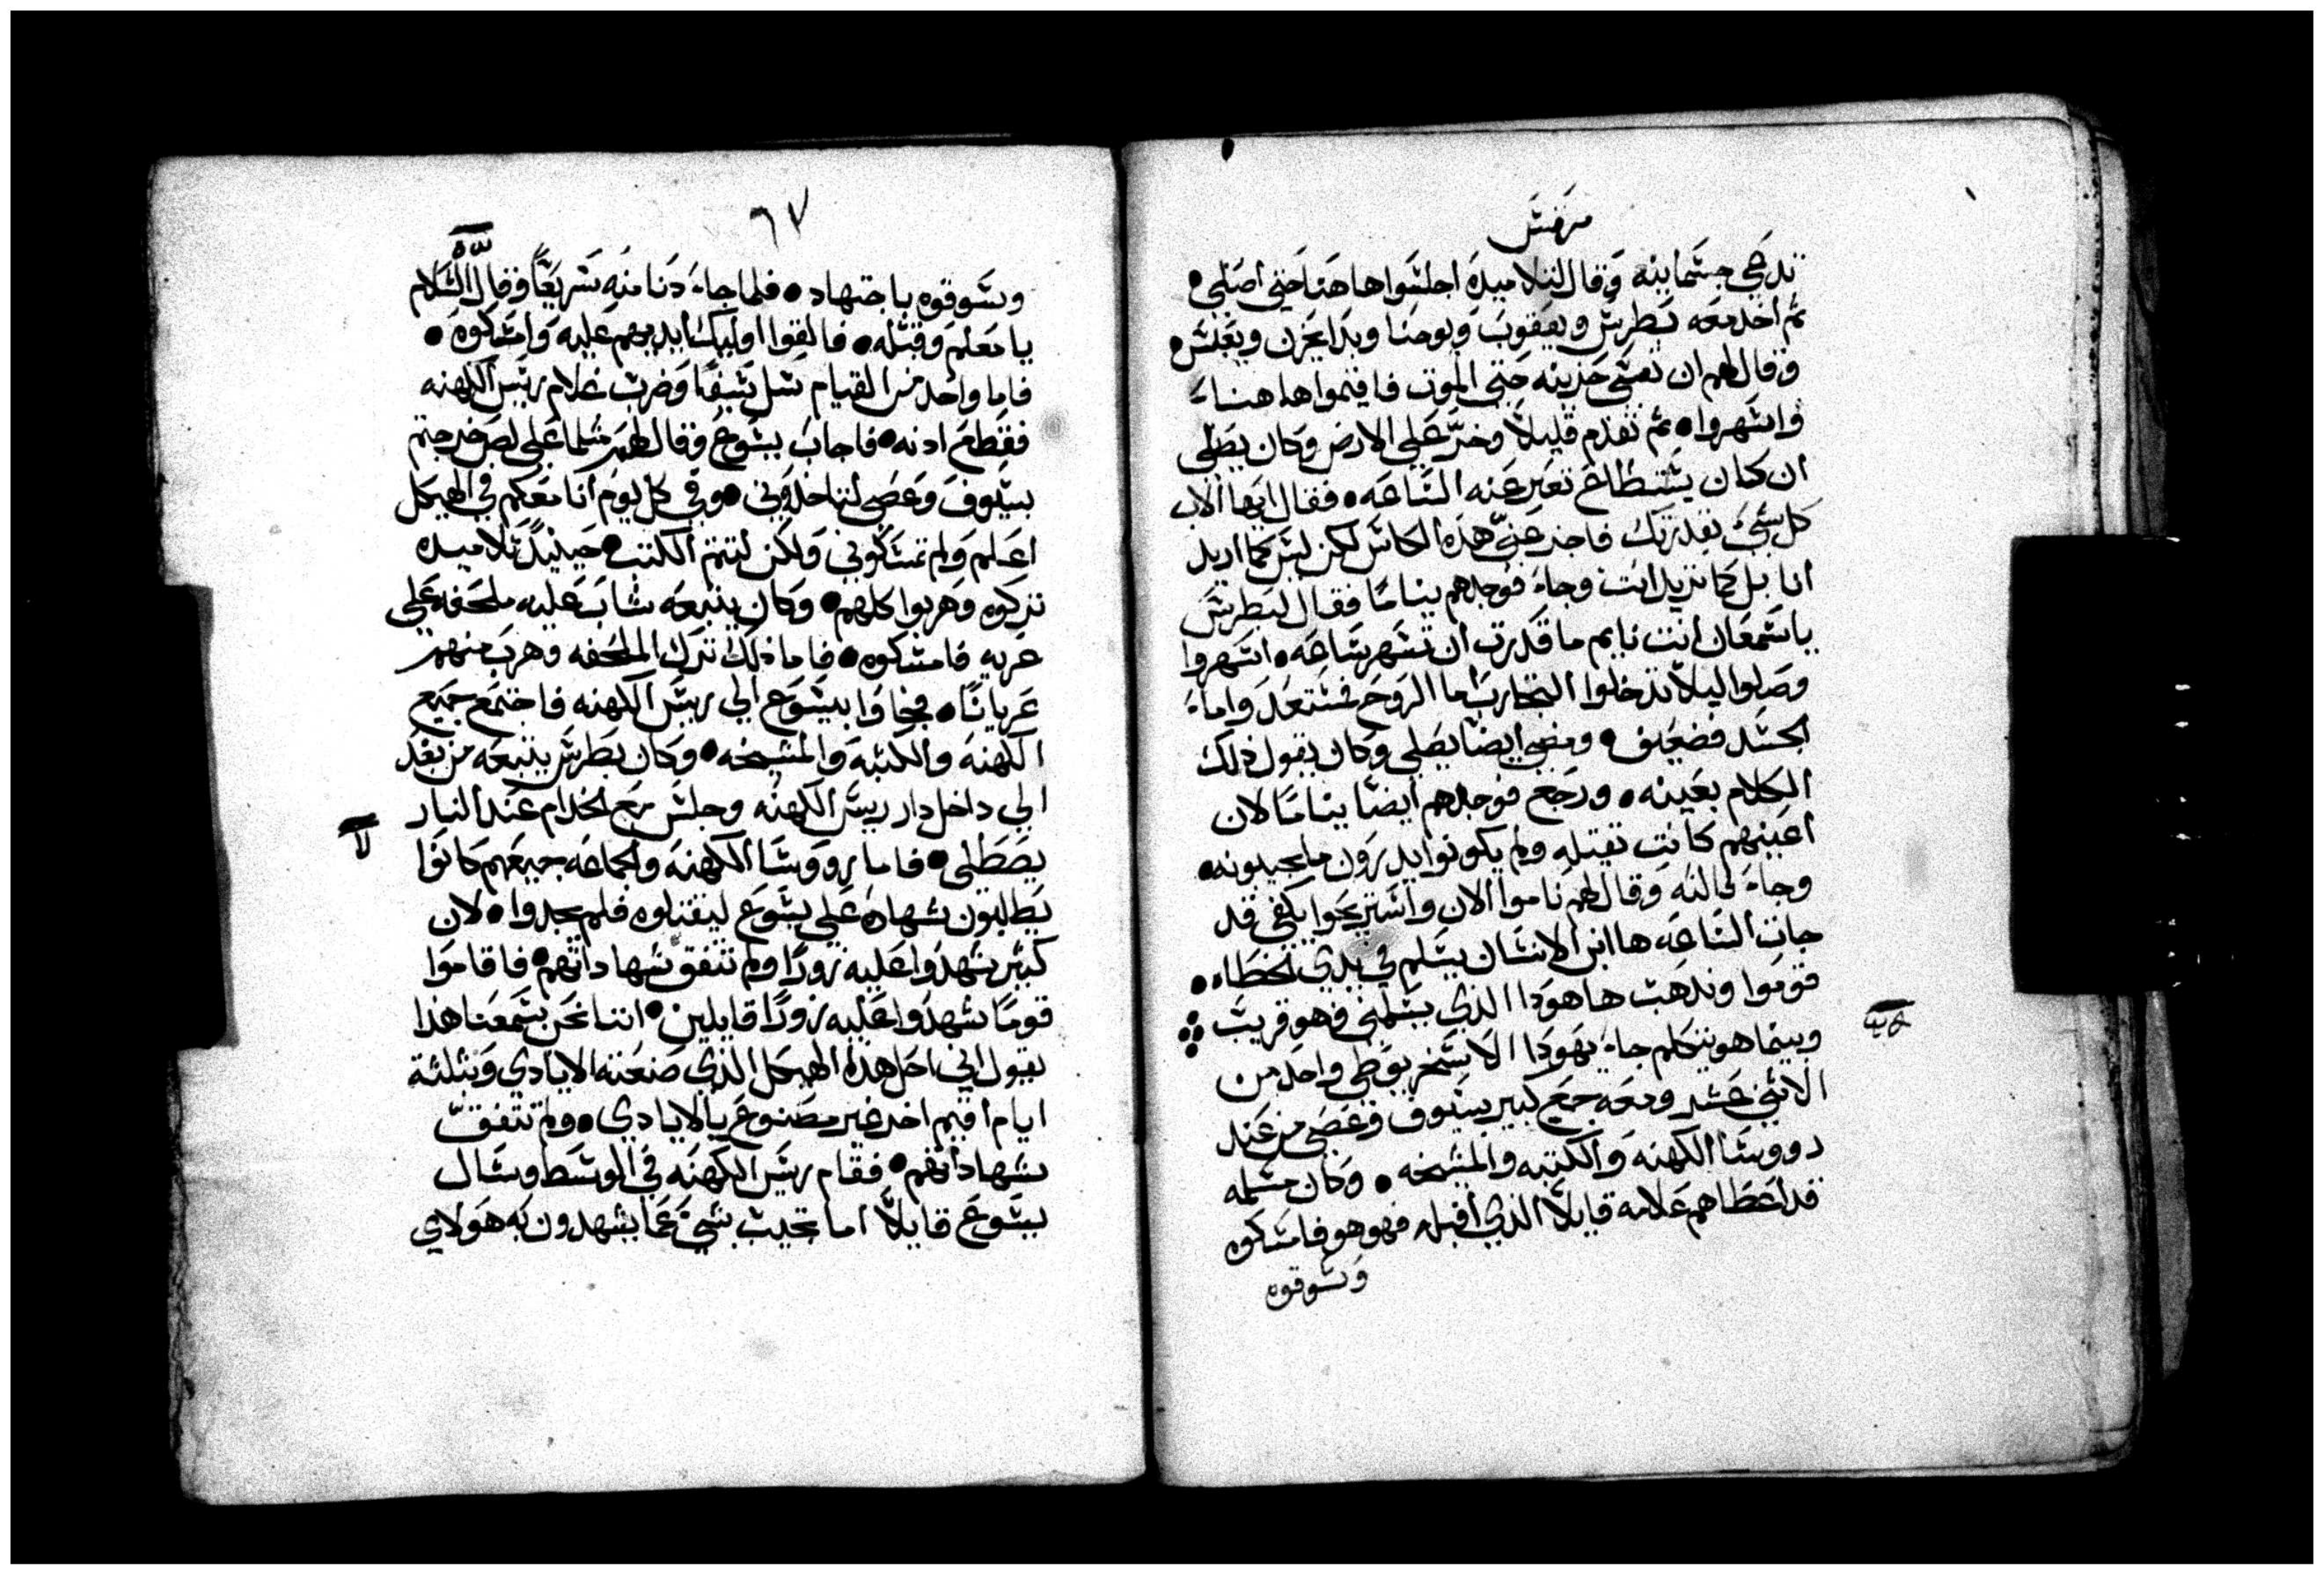 مرقس
تدعي جسمانيه وقال لتلاميذه اجلسوا هاهنا حتي اصلي •
ثم اخد معه بطرس ويعقوب ويوحنا وبدا يحزن ويعبس •
وقال لهم ان نفسي حزينه حتي الموت فاقيموا هاهنا
واسهروا • ثم تقدم قليلاً وخرّ علي الارض وكان يصلي
ان كان يستطاع تعبر عنه الساعه • فقال ايها الاب
كل شيء بقدرتك فاجز عنيّ هذه الكاس لكن ليس كما اريد
انا بل كما تريد انت وجاء فوجدهم نياماً فقال لبطرس
ياسمعان انت نايم ما قدرت ان تسهر ساعه • اسهروا
وصلوا ليلاً تدخلوا التجارب اما الروح فمستعد واما
الجسد فضعيف • ومضي ايضاً يصلي وكان يقول ذلك
الكلام بعينه • ورجع فوجدهم ايضاً نياماً لان
اعينهم كانت تقيله ولم يكونوا يدرون مايجيبونه •
وجاء ثالثه وقال لهم ناموا الان واستريحوا يكفي قد
جات الساعه ها ابن الانسان يسلم في يدي الخطاه •
قوموا ونذهب ها هودا الذي يسلمني فهو قريب
وبينما هو يتكلم جاء يهودا الاسخريوطي واحد من
الاثني عشر ومعه جمع كبير بسيوف وعصي من عند
رووسا الكهنه والكتبه والمشيخه • وكان مسلمه
قد اعطاهم علامه قايلاً الذي اقبله فهو هو فامسكوه
وسوقوه
٦٧
وسوقوه باجتهاد • فلما جاء دنا منه سريعاً وقال السلام
يا معلم وقبله • فالقوا اوليك ايديهم عليه وامسكوه •
فاما واحد من القيام سل سيفاً وضرب غلام ريس الكهنه
فقطع ادنه • فاجاب يسوع وقال لهم مثلما علي لص خرجتم
بسيوف وعصي لتاخذوني • وفي كل يوم انا معكم في الهيكل
اعلم ولم تمسكوني ولكن لتتم الكتب • حينيدً تلاميده
تركوه وهربوا كلهم • وكان يتبعه شاب عليه ملحفه علي
عريه فامسكوه • فاما ذلك ترك الملحفه وهرب منهم
عرياناً • فجاوا بيسوع الي ريس الكهنه فاجتمع جميع
الكهنه والكتبه والمشيخه • وكان بطرس يتبعه من بعد
الي داخل دار ريس الكهنه وجلس مع الخدام عند النار
يصطلي • فاما رووسا الكهنه والجماعه جميعهم كانوا
يطلبون شهاده علي يسوع ليقتلوه فلم يجدوا • لان
كبير شهدوا عليه زوراً ولم تتفق شهاداتهم • فاقاموا
قوماً شهدوا عليه زوراً قايلين • اننا نحن سمعنا هذا
يقول اني احل هذا الهيكل الذي صنعته الايادي وبتلتة
ايام اقيم اخر غير مصنوع بالايادي • ولم تتفق
شهاداتهم • فقام ريس الكهنه في الوسط وسال
يسوع قايلاً اما تجيب بشي عما يشهدون به هولاي